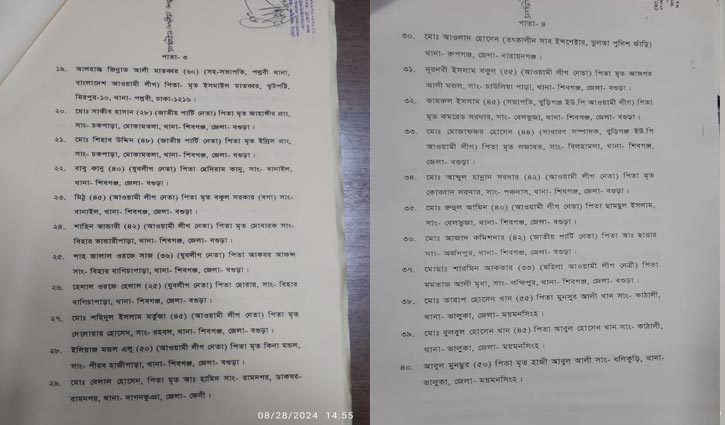 পাতা- ৩
১৯. আলহাজ্ব জিন্নাত আলী মাতব্বর (৬০) (সহ-সভাপতি, পল্লবী থানা,
বাংলাদেশ আওয়ামী লীগ) পিতা- মৃত ইসমাইল মাতব্বর, ঝুটপট্টি,
মিরপুর-১০, থানা- পল্লবী, ঢাকা-১২১৬।
২০. মোঃ সাকীব হাসান (২৮) (জাতীয় পার্টি নেতা) পিতা মৃত জাহাঙ্গীর প্রাং,
সাং- চকপাড়া, মোকামতলা, থানা- শিবগঞ্জ, জেলা- বগুড়া।
২১. মোঃ শিহাব উদ্দিন (৪৮) (জাতীয় পার্টি নেতা) পিতা মৃত ইদ্রিস প্রাং,
সাং- চকপাড়া, মোকামতলা, থানা- শিবগঞ্জ, জেলা- বগুড়া।
২২. বাবু কানু (৪০) (যুবলীগ নেতা) পিতা ছেদিরাম কানু, সাং- বানাইল,
থানা- শিবগঞ্জ, জেলা- বগুড়া।
২৩. মিঠু (৪৫) (আওয়ামী লীগ নেতা) পিতা মৃত বকুল সরকার (বগা) সাং-
বানাইল, থানা- শিবগঞ্জ, জেলা- বগুড়া।
২৪. শাহিন ভান্ডারী (৪২) (আওয়ামী লীগ নেতা) পিতা মৃত মোবারক সাং-
বিহার ভান্ডারীপাড়া, থানা- শিবগঞ্জ, জেলা- বগুড়া।
২৫. শাহ্ জালাল ওরফে সাজ (৩৬) (যুবলীগ নেতা) পিতা আকবর আকন্দ
সাং- বিহার বাগিচাপাড়া, থানা- শিবগঞ্জ, জেলা- বগুড়া।
২৬. হেলাল ওরফে হেলাল (২৫) (যুবলীগ নেতা) পিতা ছোরার, সাং- বিহার
বাগিচাপাড়া, থানা- শিবগঞ্জ, জেলা- বগুড়া।
২৭. মোঃ শহিদুল ইসলাম মর্তুজা (৪৫) (আওয়ামী লীগ নেতা) পিতা মৃত
দেলোয়ার হোসেন, সাং- রহবল, থানা- শিবগঞ্জ, জেলা- বগুড়া।
২৮. ইলিয়াজ মন্ডল এলু (৫০) (আওয়ামী লীগ নেতা) পিতা মৃত কিনা মন্ডল,
সাং- পীরব হাজীপাড়া, থানা- শিবগঞ্জ, জেলা- বগুড়া।
২৯. মোঃ বেলাল হোসেন, পিতা মৃত আঃ হামিদ সাং- রামনগর, ডাকঘর-
রামনগর, থানা- দাগনভুঞা, জেলা- ফেনী।
08/28/2024 14:55
পাতা- ৪
৩০. মোঃ আওলাদ হোসেন (তৎকালীন সাব ইন্সপেক্টার, ভুলতা পুলিশ ফাঁড়ি)
থানা- রূপগঞ্জ, জেলা- নারায়নগঞ্জ।
৩১. নূরনবী ইসলাম বকুল (৫৫) (আওয়ামী লীগ নেতা) পিতা মৃত আজগর
আলী মন্ডল, সাং- চাউলিয়া পাড়া, থানা- শিবগঞ্জ, জেলা- বগুড়া।
৩২. কামরুল ইসলাম (৪৫) (সভাপতি, বুড়িগঞ্জ ইউ.পি আওয়ামী লীগ) পিতা
মৃত কমরেড সরদার, সাং- বেলভুজা, থানা- শিবগঞ্জ, জেলা- বগুড়া।
৩৩. মোঃ মোজাফফর হোসেন (৪৪) (সাধারণ সম্পাদক, বুড়িগঞ্জ ইউ.পি
আওয়ামী লীগ) পিতা মৃত লজাবত, সাং- বিলহামলা, থানা- শিবগঞ্জ,
জেলা- বগুড়া।
৩৪. মোঃ আব্দুল হান্নান সরদার (৪২) (আওয়ামী লীগ নেতা) পিতা মৃত
কোরবান সরদার, সাং- পঞ্চদাস, থানা- শিবগঞ্জ, জেলা- বগুড়া।
৩৫. মোঃ রুহুল আমিন (৪০) (আওয়ামী লীগ নেতা) পিতা ছামছুল ইসলাম,
সাং- বেলভুজা, থানা- শিবগঞ্জ, জেলা- বগুড়া।
৩৬. মোঃ আজাদ কমিশনার (৪২) (জাতীয় পার্টি নেতা) পিতা আঃ ছাত্তার
সাং- অর্জনপুর, থানা- শিবগঞ্জ, জেলা- বগুড়া।
৩৭. মোছাঃ শারমিন আকতার (৩৩) (মহিলা আওয়ামী লীগ নেত্রী) পিতা
মমতাজ আলী মৃধা, সাং- লক্ষিপুর, থানা- শিবগঞ্জ, জেলা- বগুড়া।
৩৮. মোঃ তারাশ হোসেন খান (৫৫) পিতা মুনসুর আলী খান সাং- কাঠালী,
থানা- ভালুকা, জেলা- ময়মনসিংহ।
৩৯. মোঃ বুলবুল হোসেন খান (৪৫) পিতা আবুল হোসেন খান সাং- কাঠালী,
থানা- ভালুকা, জেলা- ময়মনসিংহ।
৪০. আবুল মুনছুর (৫০) পিতা মৃত হাজী আবুল আলী সাং- ধলিকুড়ি, থানা-
ভালুকা, জেলা- ময়মনসিংহ।